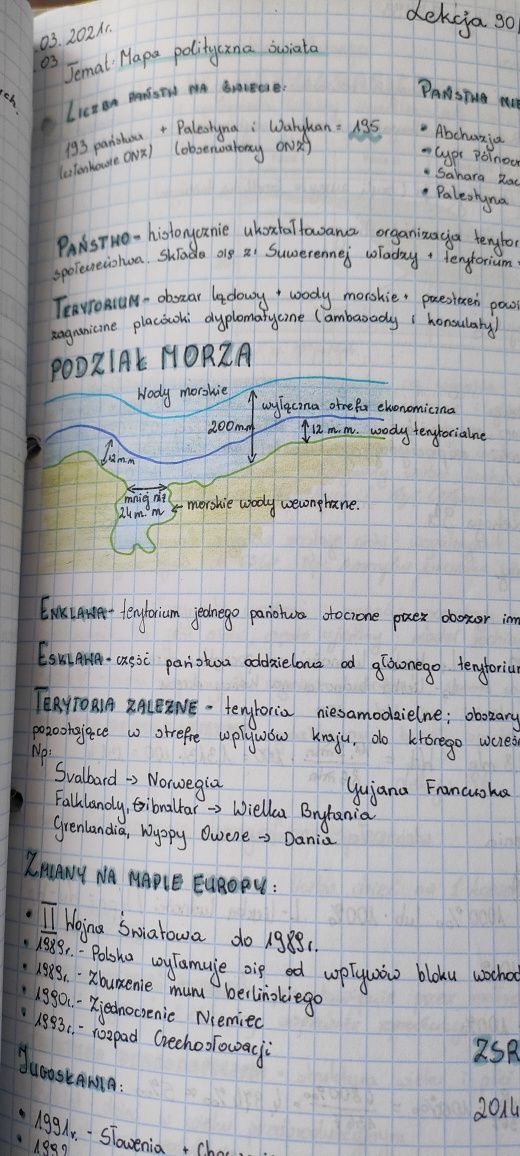 .03. 2021r.
.03
Lekcja 90
Temat: Mapa polityczna świata
LICZBA PAŃSTW NA ŚWIECIE:
193 państwa + Palestyna i Watykan = 195
(członkowie ONZ) (obserwatorzy ONZ)
PAŃSTWA NIE
• Abchazja
• Cypr Północ
• Sahara Zac
• Palestyna
PAŃSTWO - historycznie ukształtowana organizacja terytor
społeczeństwa. Składa się z: Suwerennej władzy + terytorium
TERYTORIUM - obszar lądowy + wody morskie + przestrzeń powi
zagraniczne placówki dyplomatyczne (ambasady i konsulaty)
PODZIAŁ MORZA
Wody morskie
wyłączna strefa ekonomiczna
200mm
12 m.m. wody terytorialne
12 m.m
mniej niż
24 m.m
← morskie wody wewnętrzne.
ENKLAWA - terytorium jednego państwa otoczone przez obszar inn
ESKLAWA - część państwa oddzielona od głównego terytorium
TERYTORIA ZALEŻNE - terytoria niesamodzielne; obszary
pozostające w strefie wpływów kraju, do którego wcześ
Np:
Svalbard → Norwegia
Gujana Francuska
Falklandy, Gibraltar → Wielka Brytania
Grenlandia, Wyspy Owcze → Dania
ZMIANY NA MAPIE EUROPY:
• II Wojna Światowa do 1989r.
• 1989r. - Polska wyłamuje się od wpływów bloku wschod
• 1989r. - Zburzenie muru berlińskiego
• 1990r. - Zjednoczenie Niemiec
• 1993r. - rozpad Czechosłowacji
ZSR
JUGOSŁAWIA:
2014
• 1991r. - Słowenia +
• 1992